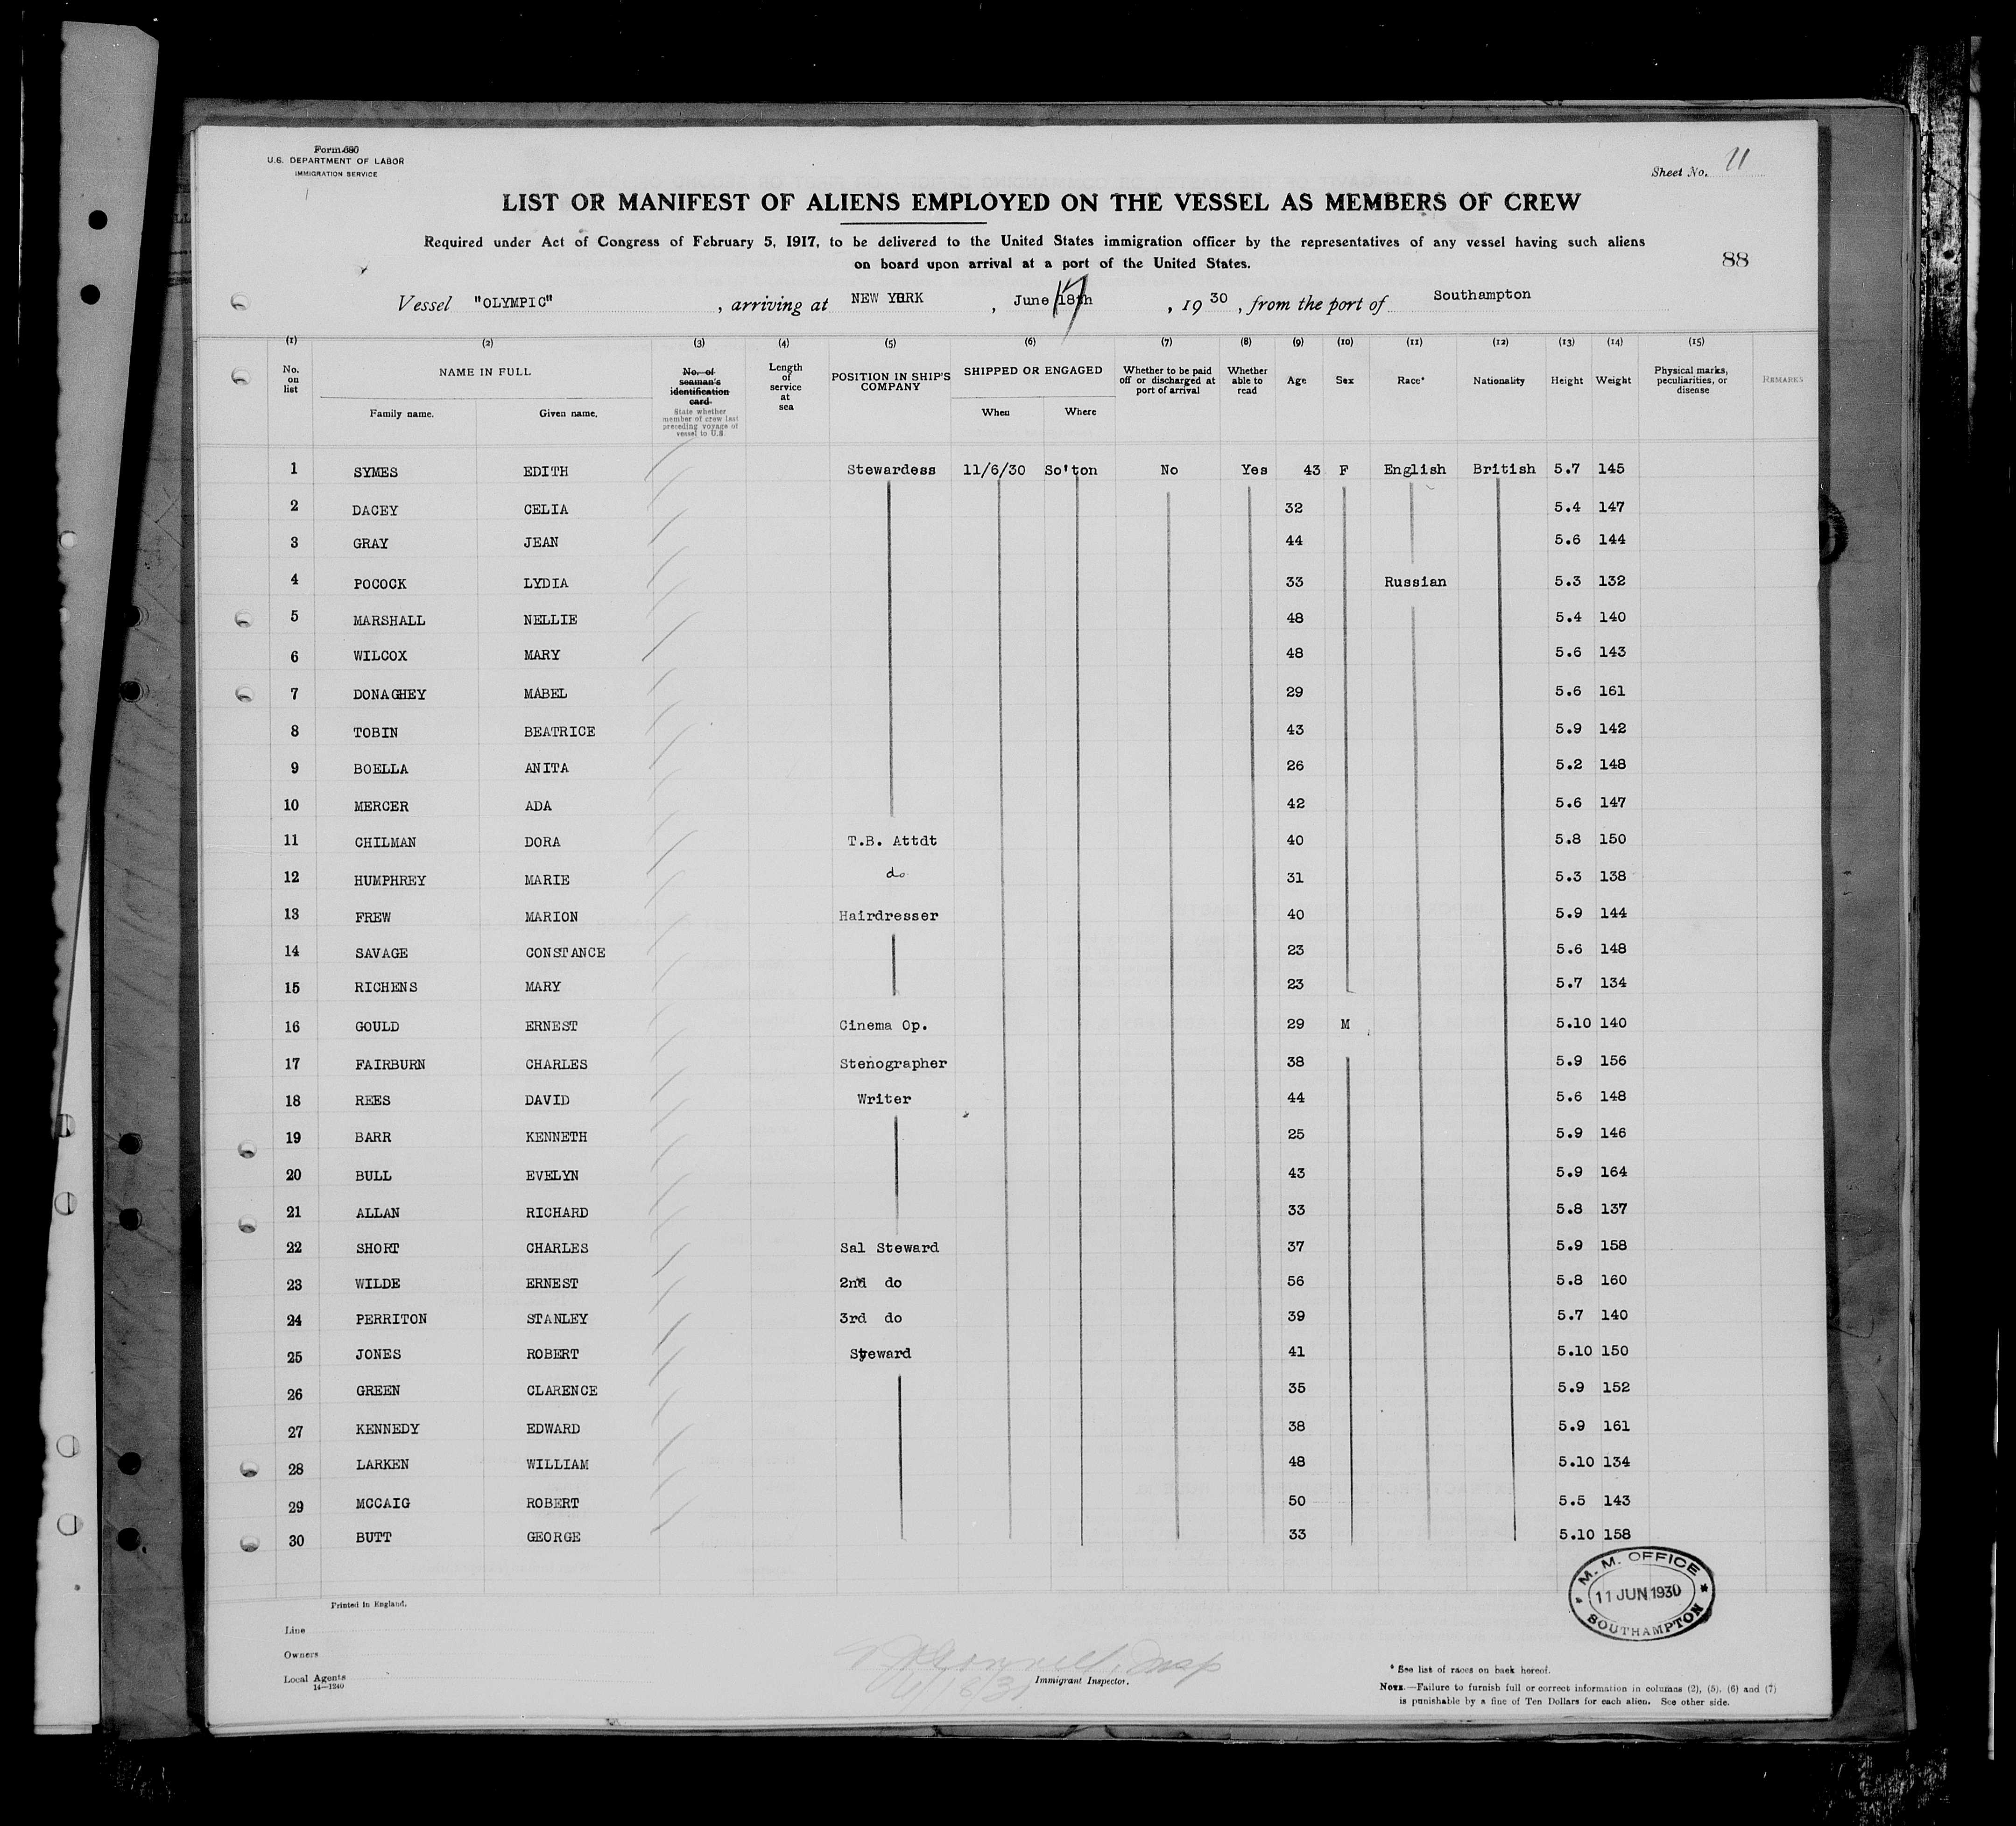 Form 680
U.S. DEPARTMENT OF LABOR
IMMIGRATION SERVICE
Sheet No. 11
LIST OR MANIFEST OF ALIENS EMPLOYED ON THE VESSEL AS MEMBERS OF CREW
Required under Act of Congress of February 5, 1917, to be delivered to the United States immigration officer by the representatives of any vessel having such aliens
on board upon arrival at a port of the United States.
88
Vessel "OLYMPIC", arriving at NEW YORK, June 17 18th, 1930, from the port of Southampton
(1) (2) (3) (4) (5) (6) (7) (8) (9) (10) (11) (12) (13) (14) (15)
No. on list NAME IN FULL Family name. Given name. No. of seaman's identification card State whether member of crew last preceding voyage of vessel to U.S. Length of service at sea POSITION IN SHIP'S COMPANY SHIPPED OR ENGAGED When Where Whether to be paid off or discharged at port of arrival Whether able to read Age Sex Race* Nationality Height Weight Physical marks, peculiarities, or disease REMARKS
1 SYMES EDITH Stewardess 11/6/30 So'ton No Yes 43 F English British 5.7 145
2 DACEY CELIA 32 5.4 147
3 GRAY JEAN 44 5.6 144
4 POCOCK LYDIA 33 Russian 5.3 132
5 MARSHALL NELLIE 48 5.4 140
6 WILCOX MARY 48 5.6 143
7 DONAGHEY MABEL 29 5.6 161
8 TOBIN BEATRICE 43 5.9 142
9 BOELLA ANITA 26 5.2 148
10 MERCER ADA 42 5.6 147
11 CHILMAN DORA T.B. Attdt 40 5.8 150
12 HUMPHREY MARIE do 31 5.3 138
13 FREW MARION Hairdresser 40 5.9 144
14 SAVAGE CONSTANCE 23 5.6 148
15 RICHENS MARY 23 5.7 134
16 GOULD ERNEST Cinema Op. 29 M 5.10 140
17 FAIRBURN CHARLES Stenographer 38 5.9 156
18 REES DAVID Writer 44 5.6 148
19 BARR KENNETH 25 5.9 146
20 BULL EVELYN 43 5.9 164
21 ALLAN RICHARD 33 5.8 137
22 SHORT CHARLES Sal Steward 37 5.9 158
23 WILDE ERNEST 2nd do 56 5.8 160
24 PERRITON STANLEY 3rd do 39 5.7 140
25 JONES ROBERT Steward 41 5.10 150
26 GREEN CLARENCE 35 5.9 152
27 KENNEDY EDWARD 38 5.9 161
28 LARKEN WILLIAM 48 5.10 134
29 MCCAIG ROBERT 50 5.5 143
30 BUTT GEORGE 33 5.10 158
M. M. OFFICE
11 JUN 1930
SOUTHAMPTON
Printed in England.
Line
Owners
Local Agents
14—1240
Immigrant Inspector.
* See list of races on back hereof.
NOTE.—Failure to furnish full or correct information in columns (2), (5), (6) and (7)
is punishable by a fine of Ten Dollars for each alien. See other side.